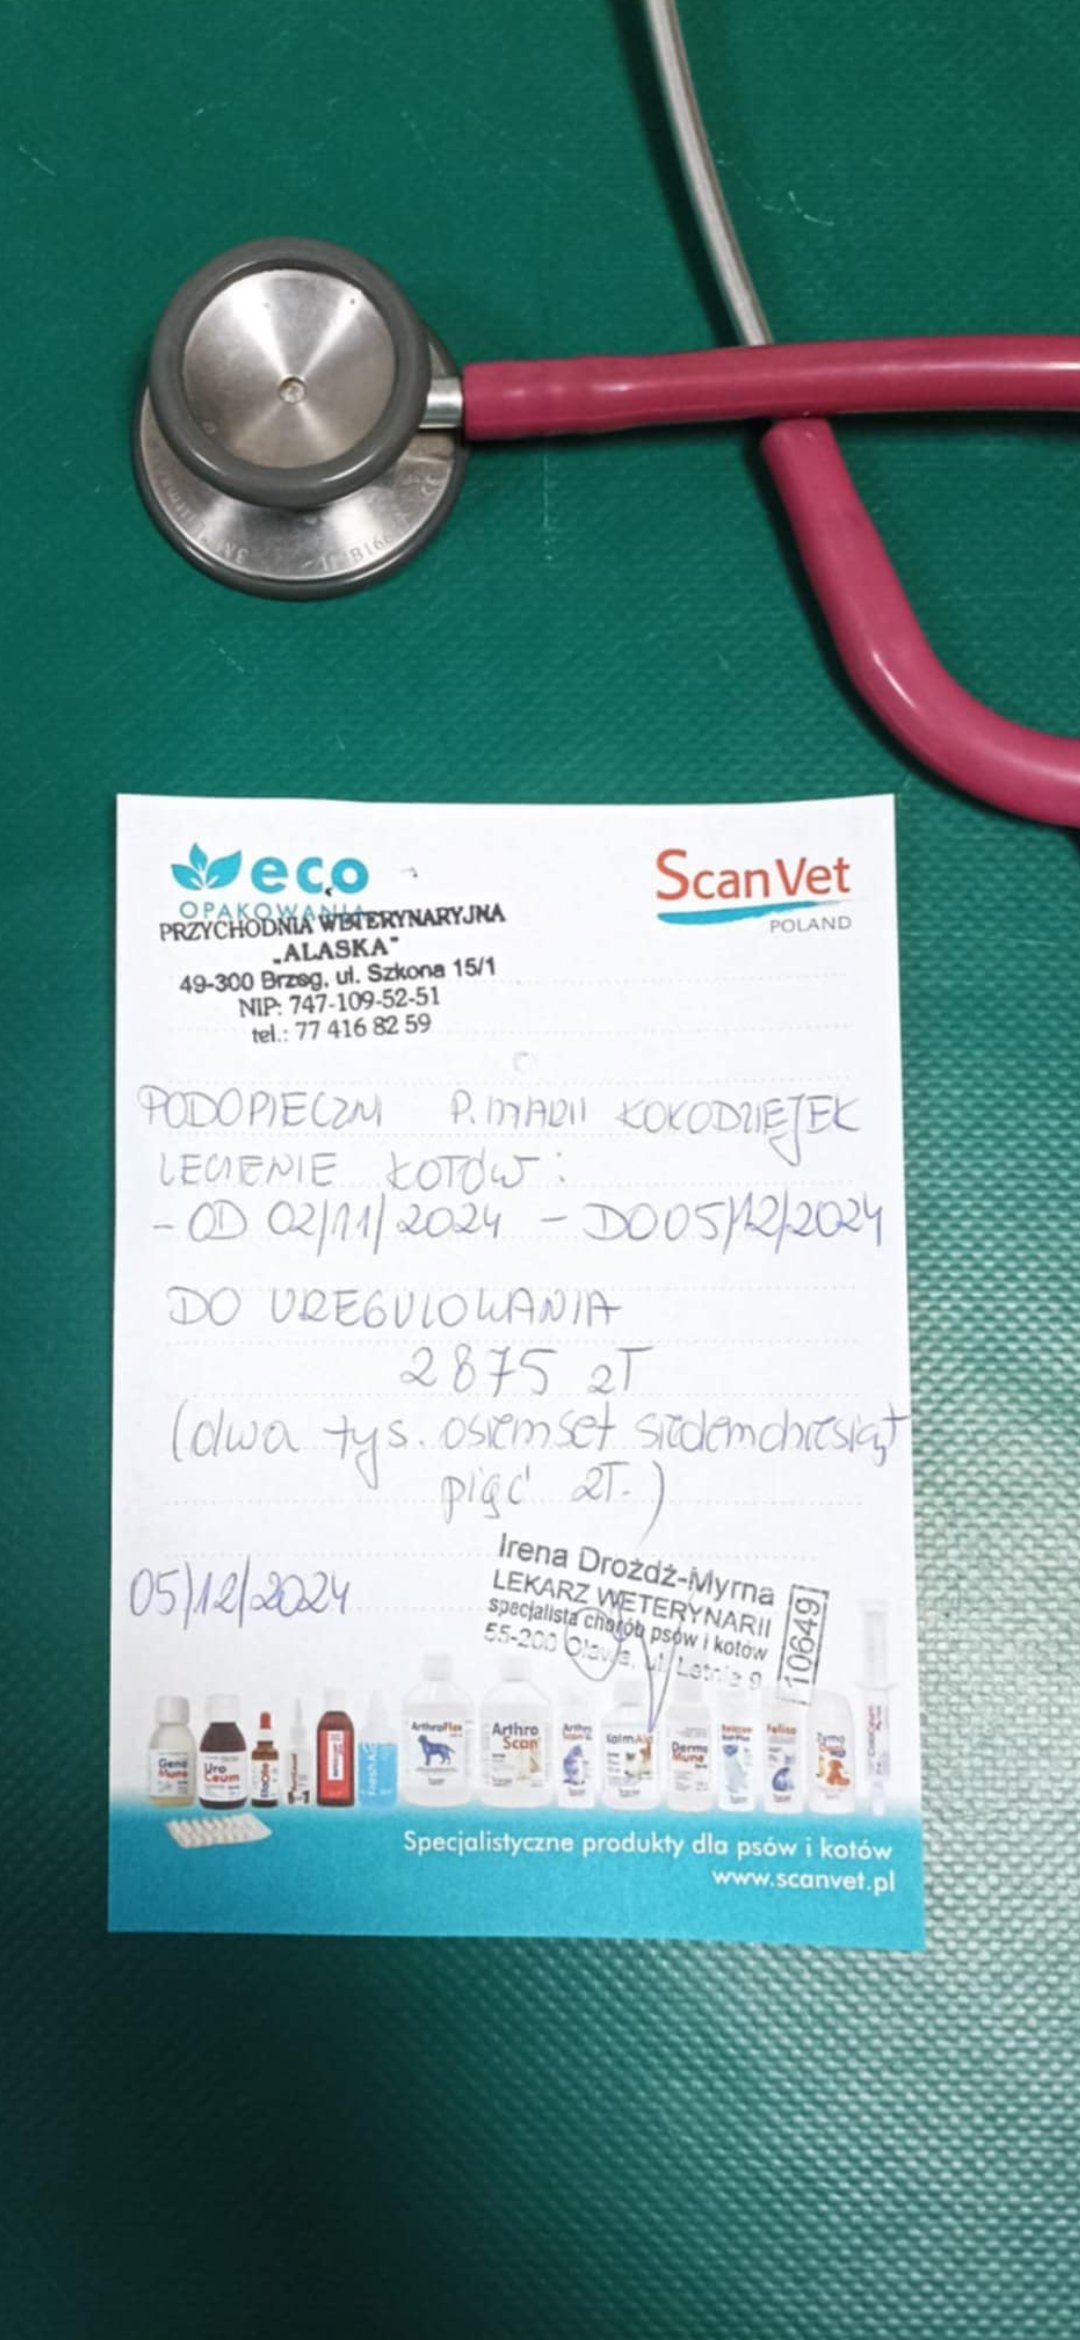 eco
OPAKOWANIA
ScanVet
POLAND
PRZYCHODNIA WETERYNARYJNA
„ALASKA"
49-300 Brzeg, ul. Szkolna 15/1
NIP: 747-109-52-51
tel.: 77 416 82 59
PODOPIECZNI P. MARII KOKODZIĘJEK
LECZENIE KOTÓW:
- OD 02/11/2024 - DO 05/12/2024
DO UREGULOWANIA
2875 zł
(dwa tys. osiemset siedemdziesiąt
pięć zł.)
05/12/2024
Irena Drożdż-Myrna
LEKARZ WETERYNARII
specjalista chorób psów i kotów
55-200 Oława, ul. Letnia 9
10649
Geno Mune
Uro Ceum
FreshAq
ArthroFlex
Arthro Scan
KalmAid
Dermo Mune
Zymo
Specjalistyczne produkty dla psów i kotów
www.scanvet.pl